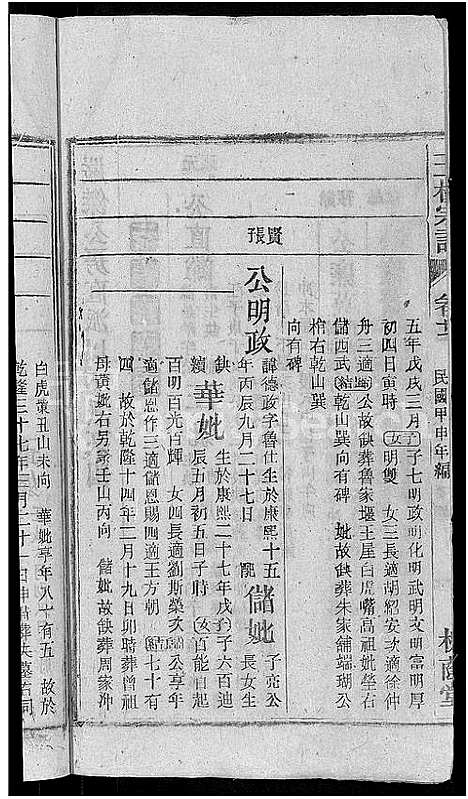 王植宗譜
卷十一
民國甲申年編
植蔭堂
五年戊戌三月
子
七明政明化明武明文明富明厚
初四日寅時
女
明雙 女三長適胡紹安次適徐仲
舟三適
公故缺葬魯家堰王屋白虎嘴高祖妣塋右
儲四武
結
乾山巽向有碑 妣故缺葬朱家舖瑞瑚公
棺右乾山巽
向有碑
賢 張
公明政
諱德政字魯仕生於康熙十五
年丙辰九月二十七日
配
儲妣
子亮公
長女生
缺
續
華妣
生於康熙二十七年戊
子
子六百迪
辰五月初五日子時
女
百能百起
百明百光百輝 女四長適劉斯榮次
公享年
適儲恩作三適儲恩賜四適王方朝
結
七十有
四 故於乾隆十四年二月十九日卯時葬曾祖
母黃妣右另冢壬山丙向 儲妣故缺葬周家沖
白虎
丑山未向 華妣享年八十有五 故於
乾隆三十七年